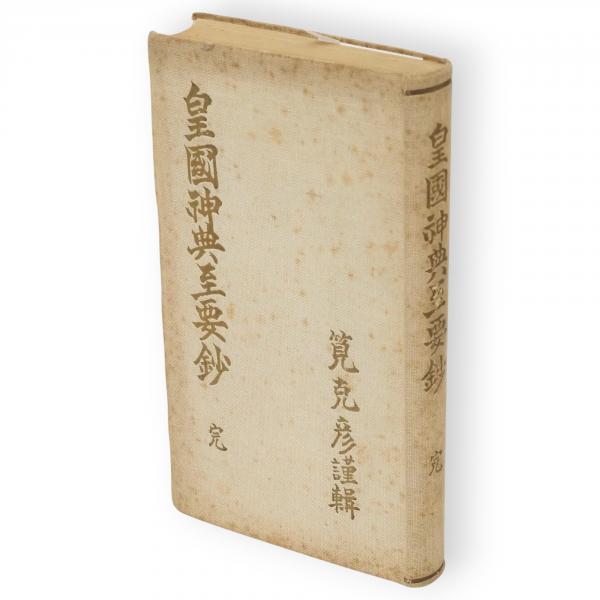 皇國神典至要鈔 完
筧克彦謹輯
皇國神典至要鈔 完